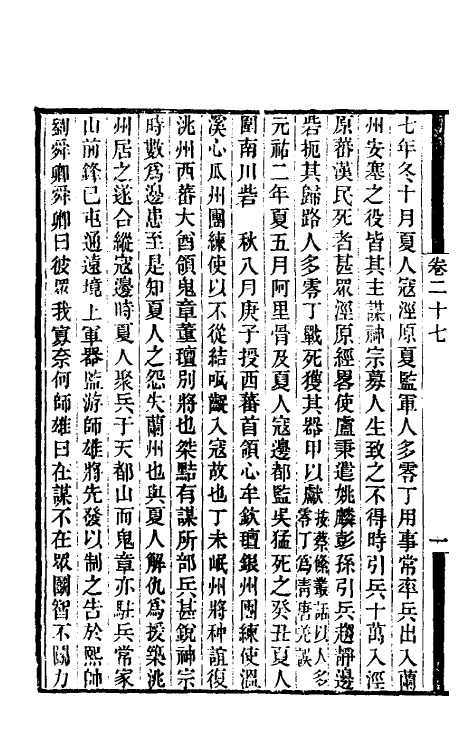 卷二十七
一
七年冬十月夏人寇涇原夏監軍人多零丁用事常率兵出入蘭
州安塞之役皆其主謀神宗募人生致之不得時引兵十萬入涇
原蕃漢民死者甚眾涇原經畧使盧秉遣姚麟彭孫引兵趨靜邊
砦扼其歸路人多零丁戰死獲其器甲以獻按蔡絛叢話以人多零丁為青唐羌誤
元祐二年夏五月阿里骨及夏人寇邊都監吳猛死之癸丑夏人
圍南川砦　秋八月庚子授西蕃首領心牟欽氊銀州團練使溫
溪心瓜州團練使以不從結㖫齪入寇故也丁未岷州將种誼復
洮州西蕃大酋領鬼章董氊別將也桀黠有謀所部兵甚銳神宗
時數為邊患至是知夏人之怨失蘭州也與夏人解仇為援築洮
州居之遂合縱寇邊時夏人聚兵于天都山而鬼章亦駐兵常家
山前鋒已屯通遠境上軍器監游師雄將先發以制之告於熙帥
劉舜卿舜卿曰彼眾我寡奈何師雄曰在謀不在眾鬬智不鬬力